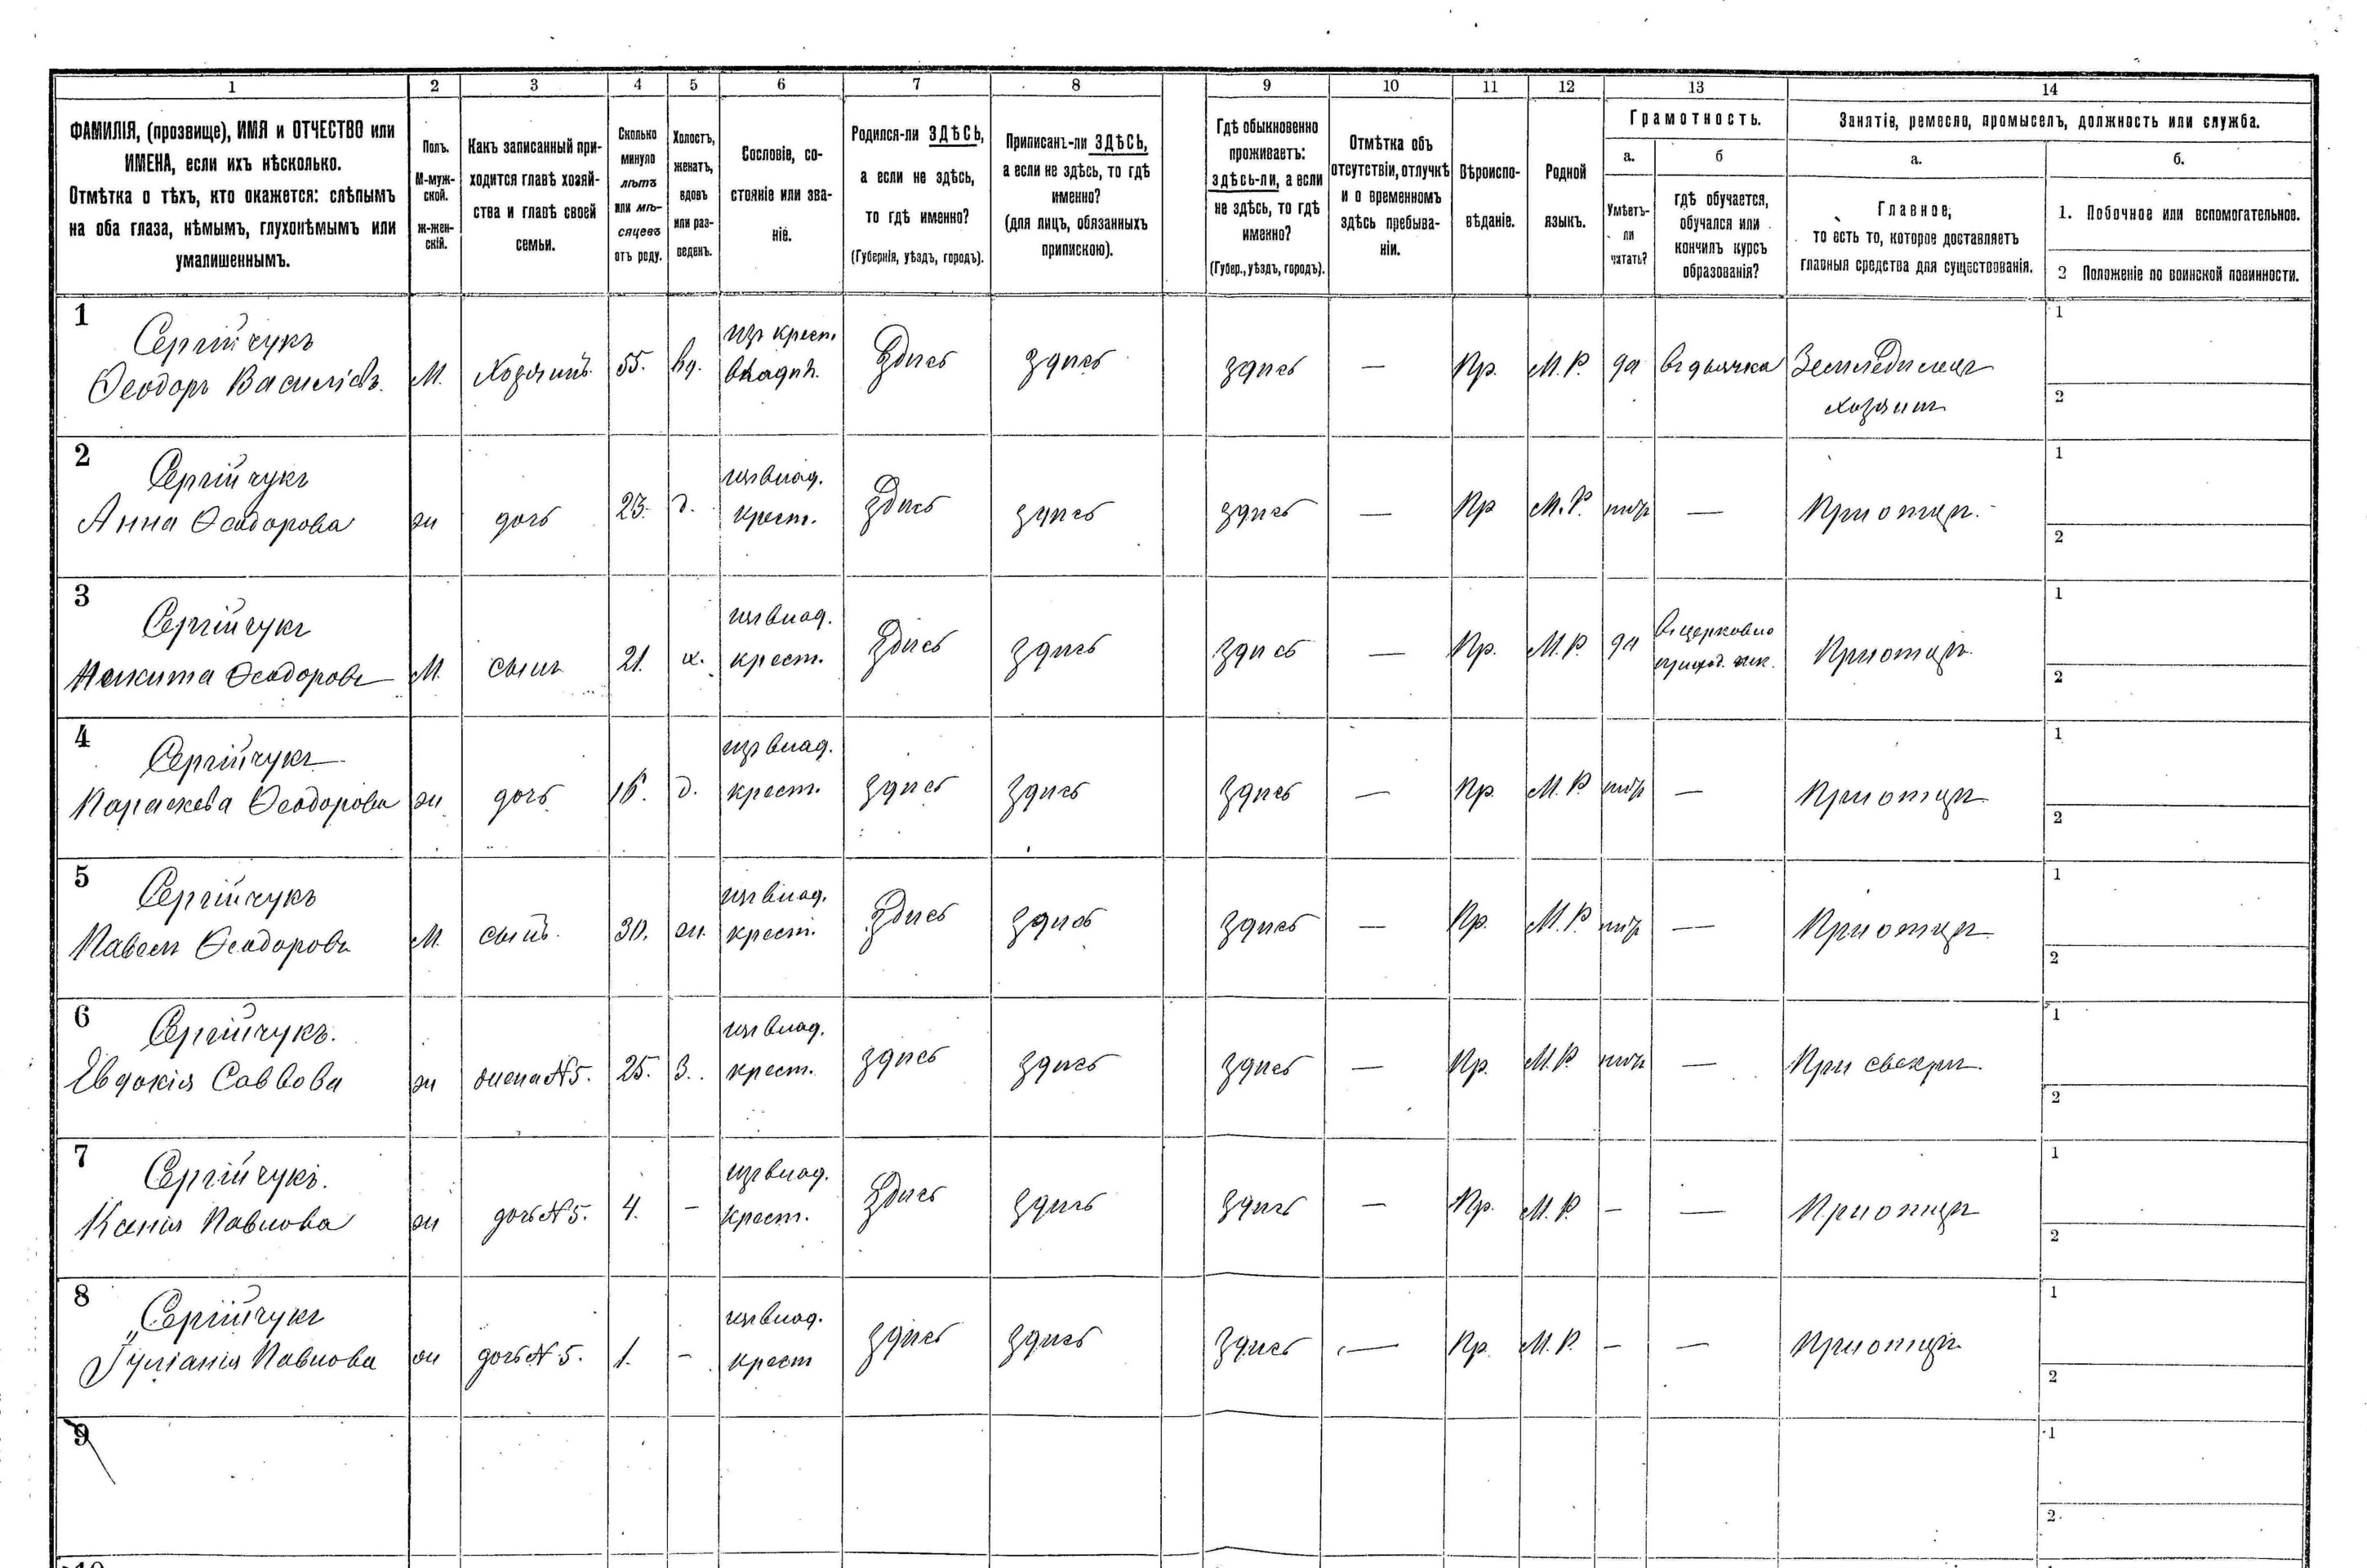 1
2
3
4
5
6
7
8
9
10
11
12
13
14
ФАМИЛІЯ, (прозвище), ИМЯ и ОТЧЕСТВО или
ИМЕНА, если ихъ нѣсколько.
Отмѣтка о тѣхъ, кто окажется: слѣпымъ
на оба глаза, нѣмымъ, глухонѣмымъ или
умалишеннымъ.
Полъ.
М-муж-
ской.
ж-жен-
скій.
Какъ записанный при-
ходится главѣ хозяй-
ства и главѣ своей
семьи.
Сколько
минуло
лѣтъ
или мѣ-
сяцевъ
отъ роду.
Холостъ,
женатъ,
вдовъ
или раз-
веденъ.
Сословіе, со-
стояніе или зва-
ніе.
Родился-ли ЗДѢСЬ,
а если не здѣсь,
то гдѣ именно?
(Губернія, уѣздъ, городъ).
Приписанъ-ли ЗДѢСЬ,
а если не здѣсь, то гдѣ
именно?
(для лицъ, обязанныхъ
припискою).
Гдѣ обыкновенно
проживаетъ:
здѣсь-ли, а если
не здѣсь, то гдѣ
именно?
(Губер., уѣздъ, городъ).
Отмѣтка объ
отсутствіи, отлучкѣ
и о временномъ
здѣсь пребыва-
ніи.
Вѣроиспо-
вѣданіе.
Родной
языкъ.
Грамотность.
а.
Умѣетъ-
ли
читать?
б
гдѣ обучается,
обучался или
кончилъ курсъ
образованія?
Занятіе, ремесло, промыселъ, должность или служба.
а.
Главное,
то есть то, которое доставляетъ
главныя средства для существованія.
б.
1. Побочное или вспомогательное.
2 Положеніе по воинской повинности.
1
Сергійчукъ
Ѳеодоръ Василіевъ.
М.
Хозяинъ.
55.
вд.
изъ крест.
владѣл.
Здѣсь
здѣсь
здѣсь
—
Пр.
М. Р.
да
въ дьячка
Земледѣлецъ
хозяинъ
1
2
2
Сергійчукъ
Анна Ѳеодорова
ж
дочь
23.
д.
изъ влад.
крест.
Здѣсь
здѣсь
здѣсь
—
Пр
М. Р.
нѣтъ
—
При отцѣ.
1
2
3
Сергійчукъ
Никита Ѳеодоровъ
М.
сынъ
21.
х.
изъ влад.
крест.
Здѣсь
здѣсь
здѣсь
—
Пр.
М. Р.
да
въ церковно
приход. шк.
При отцѣ.
1
2
4
Сергійчукъ
Параскева Ѳеодорова
ж
дочь
16.
д.
изъ влад.
крест.
здѣсь
здѣсь
здѣсь
—
Пр.
М. Р.
нѣтъ
—
При отцѣ
1
2
5
Сергійчукъ
Павелъ Ѳеодоровъ
М.
сынъ.
30.
ж.
изъ влад.
крест.
Здѣсь
здѣсь
здѣсь
—
Пр.
М. Р.
нѣтъ
—
При отцѣ
1
2
6
Сергійчукъ.
Евдокія Саввова
ж
жена N 5.
25.
З.
изъ влад.
крест.
здѣсь
здѣсь
здѣсь
—
Пр.
М. Р.
нѣтъ
—
При свекрѣ.
1
2
7
Сергійчукъ.
Ксенія Павлова
ж
дочь N 5.
4.
-
изъ влад.
крест.
Здѣсь
здѣсь
здѣсь
—
Пр.
М. Р.
-
—
При отцѣ
1
2
8
Сергійчукъ
Іуліанія Павлова
ж
дочь N 5.
1.
-
изъ влад.
крест
здѣсь
здѣсь
здѣсь
—
Пр.
М. Р.
-
—
При отцѣ.
1
2
9
1
2.